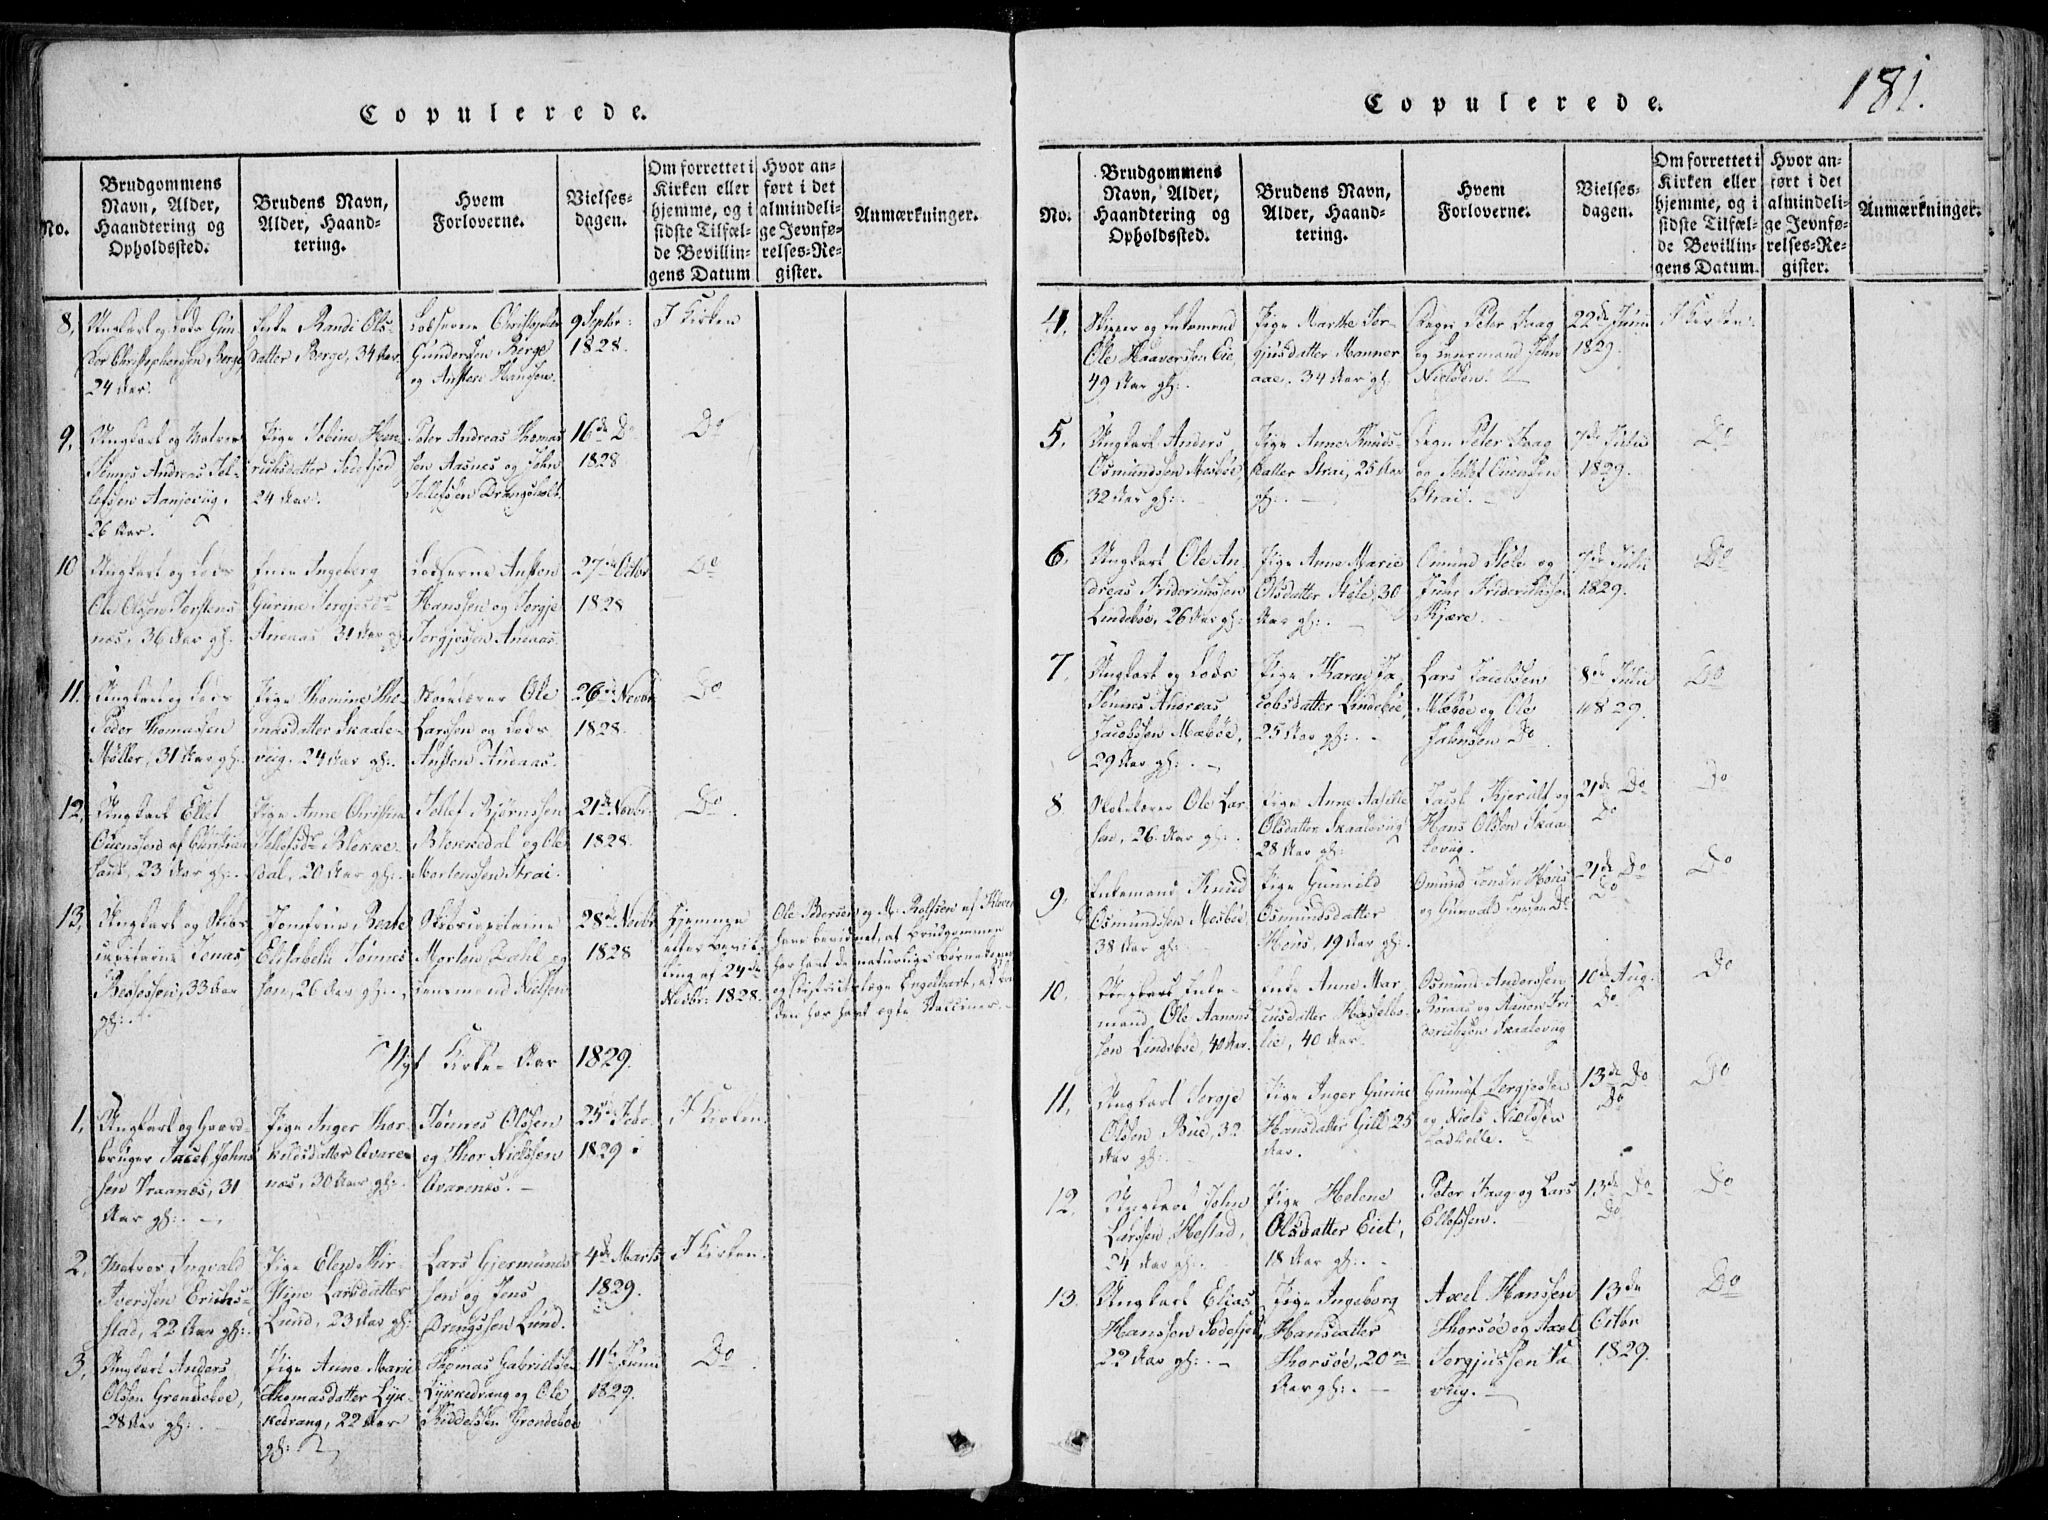 Copulerede.
No.
Brudgommens
Navn, Alder,
Haandtering og
Opholdssted.
Brudens Navn,
Alder, Haand-
tering.
Hvem
Forloverne.
Vielses-
dagen.
Om forrettet i
Kirken eller
hjemme, og i
sidste Tilfæl-
de Bevillin-
gens Datum
Hvor an-
ført i det
almindeli-
ge Jevnfø-
relses-Re-
gister.
Anmærkninger.
8.
Ungkarl og Lods Gun-
der Christophersen Berge
24 Aar.
Enke Randi Ols-
datter Berge, 34 Aar
Lodserne Christopher
Gundersen Berge
og Ansten Hanssen.
9 Septbr:
1828.
I Kirken
9.
Ungkarl og Matros
Tønnes Andreas Tel-
lefsen Aanjeviig,
26 Aar.
Pige Tobine Hen-
richsdatter
24 Aar.
Peter Andreas Thomas
sen Aasnes og John
Tellefsen Drangsholt.
16de Do
1828
Do
10
Ungkarl og Lods
Ole Olsen Torstens
nes, 36 Aar gl:
Enke Ingeborg
Gurine
31 Aar gl:
Lodserne Ansten
Hanssen og Torgje
Torgjesen
27de Octbr
1828
Do
11.
Ungkarl og Lods
Peder Thomassen
Møller, 31 Aar gl:
Pige Thomine Tho-
masdatter Skaale-
viig. 24 Aar gl:.
Skolelærer Ole
Larssen og Lods
Ansten
26de Novbr
1828.
Do
12,
Ungkarl Ellef
af Christian
sand, 23 Aar gl:.
Pige Anne Christine
Tellefsdr Blekke-
dal, 20 Aar gl:.
Tellef Bjørnssen
Blekkedal og Ole
Mortenssen Strai.
21de Novbr
1828.
Do
13,
Ungkarl og Skibs
capitaine Jonas
33 Aar
gl:.
Jomfrue Beate
Elisabeth Tønnes
sen, 26 Aar gl:.
Skibscapitaine
Morten Dahl og
Lensmand Nielsen
28de Novbr
1828
Hjemme
efter Bevil-
ling af 24de
Novbr: 1828.
Ole Pedersen og M: Rolfsen af
have bevidnet, at Brudgommen
har havt de naturlige Børnekopper
og Districtslæge Engelhart, at Bru
den har havt ægte Vacciner.
Nyt Kirke-Aar 1829.
1,
Ungkarl og Gaard-
bruger Jacob Johns
sen Kraanes, 31
Aar gl:.
Pige Inger Thor-
kildsdatter Qvare-
nes, 30 Aar gl:.
Tønnes Olssen
og Thor Nielssen
Qvarenes.
25de Febr.
1829
I Kirken.
2,
Matros Ingvald
Iverssen Erichs-
stad, 22 Aar gl:.
Pige Elen Kir-
stine Larsdatter
Lund, 23 Aar gl:
Lars Gjermunds
sen og Jens
Lund.
4de Marts
1829.
I Kirken.
3,
Ungkarl Anders
Olssen Grændeboe,
28 Aar gl:.
Pige Anne Marie
Thomasdatter Lyk-
kedrang, 22 Aar
gl:
Thomas Gabrielsen
Lykkedrang og Ole
1829.
Do
Copulerede.
181.
No.
Brudgommens
Navn, Alder,
Haandtering og
Opholdssted.
Brudens Navn,
Alder, Haand-
tering.
Hvem
Forloverne.
Vielses-
dagen.
Om forrettet i
Kirken eller
hjemme, og i
sidste Tilfæl-
de Bevillin-
gens Datum.
Hvor an-
ført i det
almindeli-
ge Jevnfø-
relses-Re-
gister.
Anmærkninger.
4.
Skipper og Enkemand
Ole Haaversen Eie,
49 Aar gl:.
Pige Marthe Tor-
gjusdatter Monner
aae. 34 Aar gl:
Degn Peter Faag
og Lensmand John
Nielssen.
22de Junii
1829.
I Kirken.
5.
Ungkarl Anders
Osmundssen Mesboe,
32 Aar gl:.
Pige Anne Knuds-
datter Strai, 25 Aar
gl:.
Degn Peter Faag
og Tellef
Strai.
7de Julii
1829.
Do
6.
Ungkarl Ole An
dreas Friderichssen
Lindeboe, 26 Aar gl:
Pige Anne Marie
Olsdatter Støle, 30
Aar gl:.
Omund Støle og
Friderichsen
Kjære.
7de Julii
1829.
Do
7.
Ungkarl og Lods
Tønnes Andreas
Jacobssen Mæboe,
29 Aar gl:.
Pige Karen Ja
cobsdatter Lindeboe,
25 Aar gl:.
Lars Jacobsen
Mæboe og Ole
Jahnssen Do
8de Julii
1829.
Do
8
Skolelærer Ole Lar-
sen, 26. Aar gl:.
Pige Anne Aasille
Olsdatter Skaalevig
28 Aar gl:
Jacob Kjerulf og
Hans Olssen Skaa
leviig.
21de Do
Do
Do
9,
Enkemand Knud
Osmundssen Mesboe,
38 Aar gl:
Pige Gunnild
Osmundsdatter
Høus, 19 Aar gl:.
Omund Jensen Høus
og Gunvald Do
21de Do
Do
Do
10.
Ungkarl Enke-
mand Ole Aanons
sen Lindeboe, 40 Aar.
Enke Anne Mar-
cusdatter Hasselbo-
lie, 40 Aar.
Osmund Anderssen
og Aanon Fri
derichssen Skaalevig
10de Aug.
Do
Do
11,
Ungkarl Torgje
Olssen Bue, 32
Aar gl:.
Pige Inger Gurine
Hansdatter Gill, 25
Aar.
Gunuf Torgjessen
og Niels Nielssen
13de Do
Do
Do
12.
Ungkarl John
Larssen Hestad,
24 Aar gl:.
Pige Helene
Olsdatter Eiet,
18 Aar gl:.
Peter Faag og Lars
Ellefssen.
13de Do
Do
Do
13.
Ungkarl Elias
Hanssen
22 Aar gl:.
Pige Ingeborg
Hansdatter
Thorsøe, 20
Aar gl:.
Axel Hansen
Thorsøe og Axel
Torgjussen Va
viig.
13de
Octbr
1829.
Do